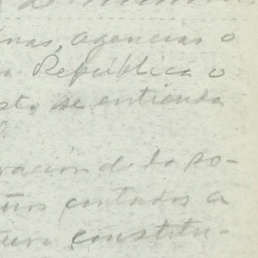 de
inas, agencias o
a República o
sto, se entienda
ración de la so-
años contados a
tura constitu-